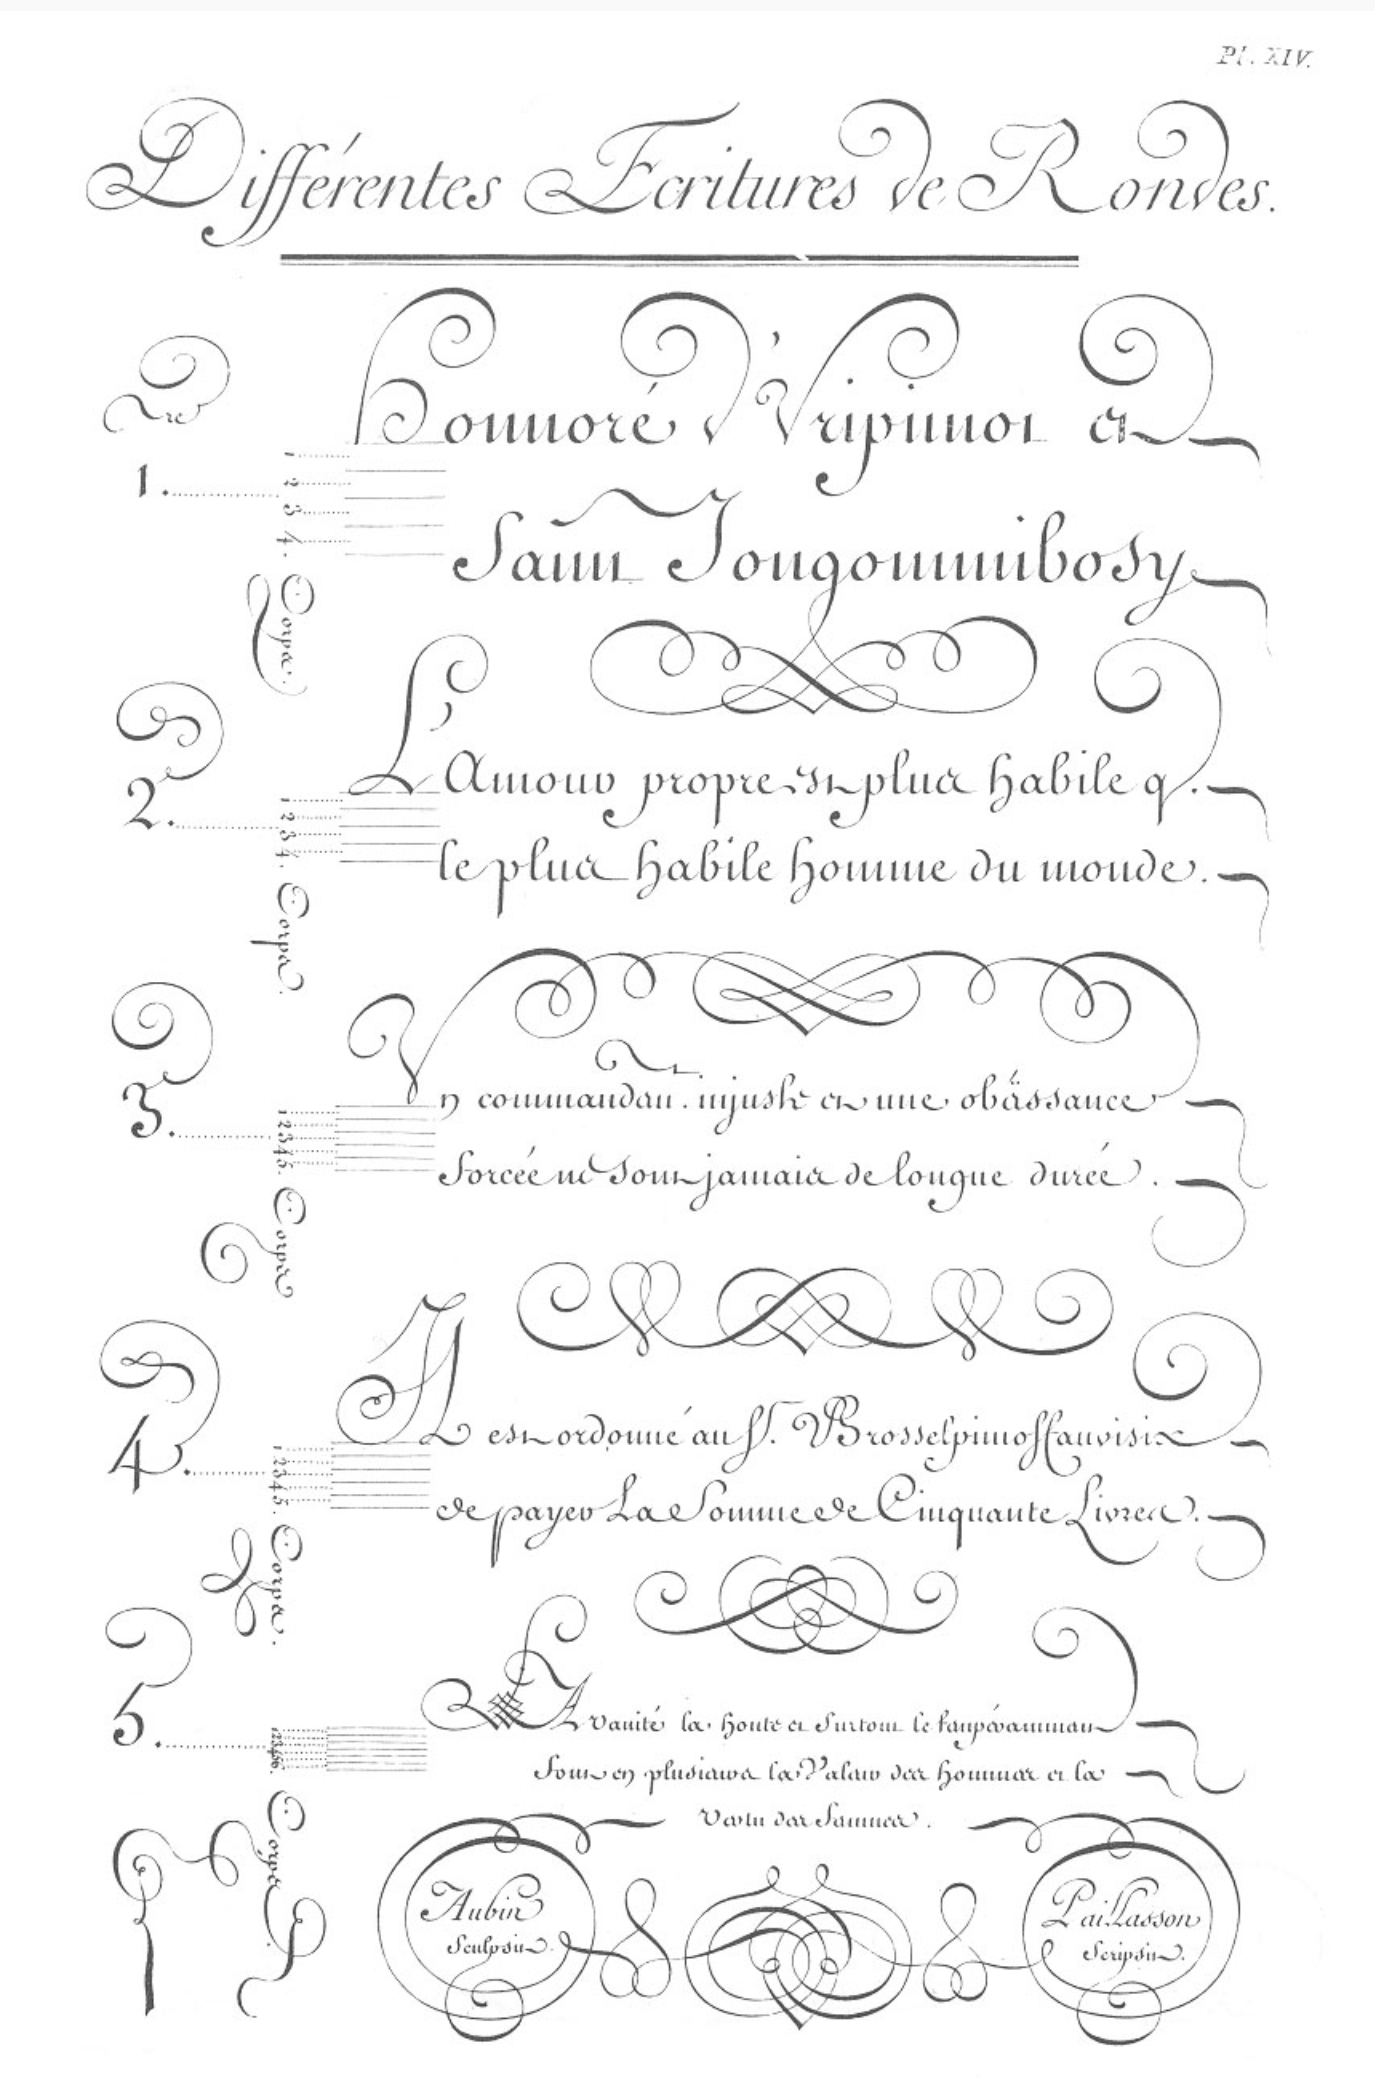 Pl. XIV.
Différentes Ecritures de Rondes.
Honnoré d'Vripinnot et
Saint Jongoumnibosy
1. 1 2 3 4. Corps.
L'Amour propre est plus habile q.
le plus habile homme du monde.
2. 1 2 3 4. Corps.
Un commandant injuste et une obäissance
forcée ne sont jamais de longue durée.
3. 1 2 3 4 5. Corps
Il est ordonné au Sr.
de payer La Somme de Cinquante Livres.
4. 1 2 3 4 5. Corps.
La vanité la honte et surtout le tempéramment
font en plusieurs la Valeur des hommes et la
vertu des femmes.
5. 1 2 3 4 5 6. Corps
Aubin
Sculpsit.
Paillasson
Scripsit.